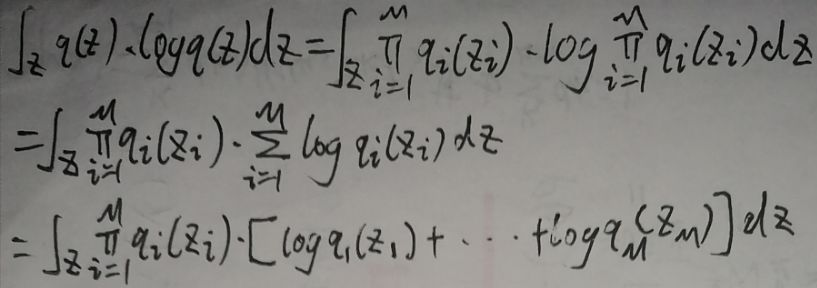 ∫_z q(z)·log q(z)dz = ∫_z ∏_{i=1}^{M} q_i(z_i)·log ∏_{i=1}^{M} q_i(z_i)dz
= ∫_z ∏_{i=1}^{M} q_i(z_i)·∑_{i=1}^{M} log q_i(z_i)dz
= ∫_z ∏_{i=1}^{M} q_i(z_i)·[log q_1(z_1)+···+log q_M(z_M)]dz